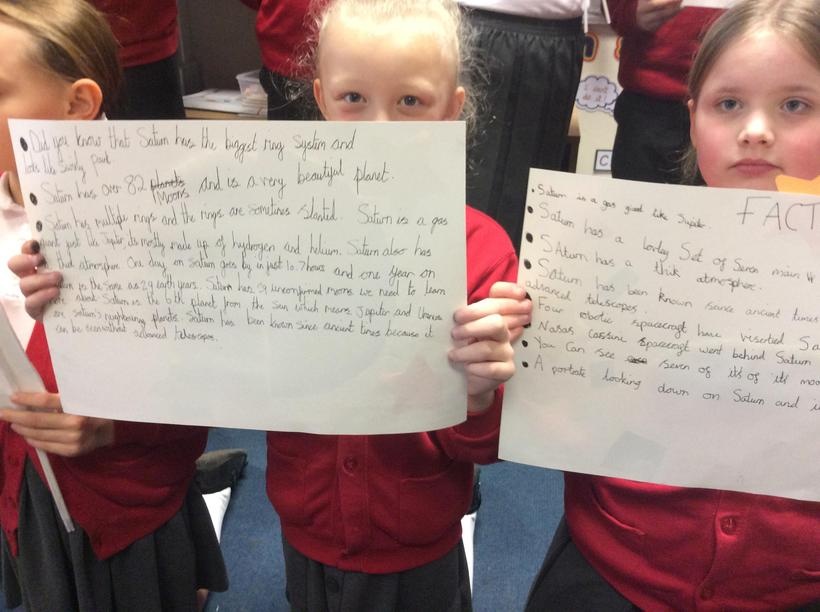 Did you know that Saturn has the biggest ring system and
looks like Swirly Paint
Saturn has over 82 planets Moons and is a very beautiful planet.
Saturn has multiple rings and the rings are sometimes slanted. Saturn is a gas
giant just like Jupiter its mostly made up of hydrogen and helium. Saturn also has
thick atmosphere One day on Saturn goes by in just 10.7 hours and one year on
is the same as 29 earth years. Saturn has 29 unconfirmed moons we need to learn
more about Saturn is the 6th planet from the sun which means Jupiter and Uranus
are Saturn's neighbouring planets. Saturn has been known since ancient times because it
can be seen without advanced telescopes.
FACT
Saturn is a gas giant like Jupiter.
Saturn has a lovley Set of Seven main
SAturn has a thik atmosphere.
Saturn has been known since ancient times
advanced telescopes.
Four robotic spacecraft have reserted Sa
Nasas cassine spacecraft went behind Saturn
You Can see seven of its of its moo
A portrate looking down on Saturn and i
I don't
do it!
C